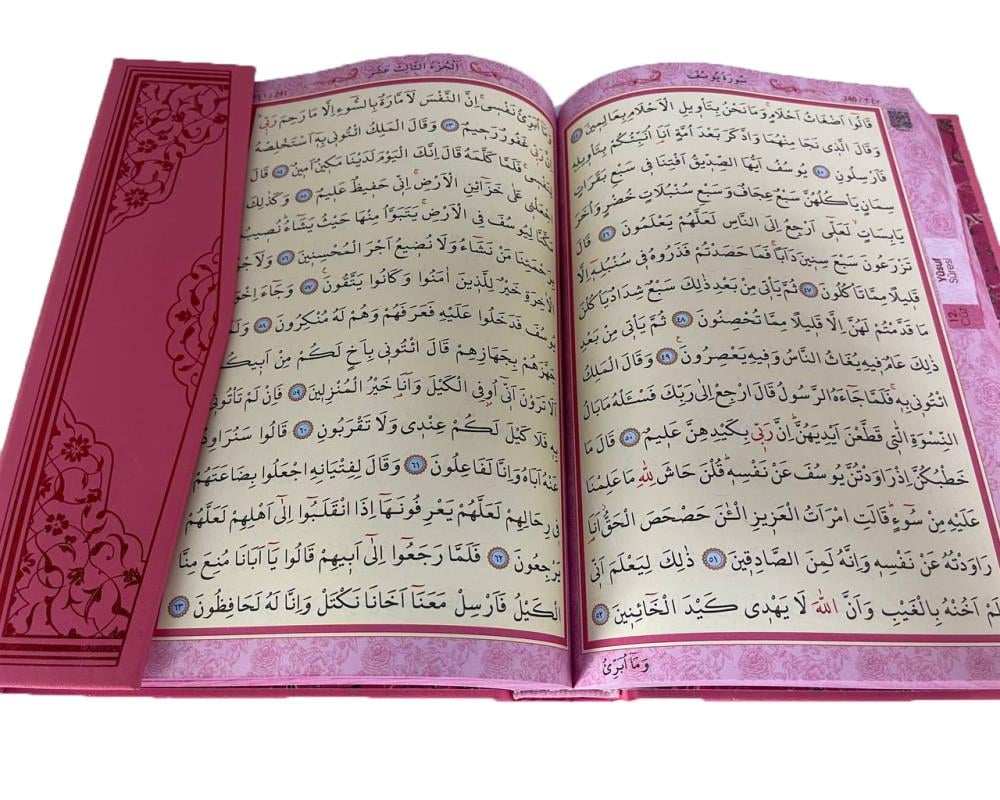 سورة يوسف
240 / ٢٤٠
قَالُوا اَضْغَاثُ اَحْلَامٍ وَمَا نَحْنُ بِتَاْوِيلِ الْاَحْلَامِ بِعَالِمِينَ ٤٤
وَقَالَ الَّذِى نَجَا مِنْهُمَا وَادَّكَرَ بَعْدَ اُمَّةٍ اَنَا۬ اُنَبِّئُكُمْ بِتَاْوِيلِهِ
فَاَرْسِلُونِ ٤٥ يُوسُفُ اَيُّهَا الصِّدِّيقُ اَفْتِنَا فِى سَبْعِ بَقَرَاتٍ
سِمَانٍ يَاْكُلُهُنَّ سَبْعٌ عِجَافٌ وَسَبْعِ سُنْبُلَاتٍ خُضْرٍ وَاُخَرَ
يَابِسَاتٍ لَعَلِّى اَرْجِعُ اِلَى النَّاسِ لَعَلَّهُمْ يَعْلَمُونَ ٤٦ قَالَ
تَزْرَعُونَ سَبْعَ سِنِينَ دَاَبًا فَمَا حَصَدْتُمْ فَذَرُوهُ فِى سُنْبُلِهِ اِلَّا
قَلِيلًا مِمَّا تَاْكُلُونَ ٤٧ ثُمَّ يَاْتِى مِنْ بَعْدِ ذٰلِكَ سَبْعٌ شِدَادٌ يَاْكُلْنَ
مَا قَدَّمْتُمْ لَهُنَّ اِلَّا قَلِيلًا مِمَّا تُحْصِنُونَ ٤٨ ثُمَّ يَاْتِى مِنْ بَعْدِ
ذٰلِكَ عَامٌ فِيهِ يُغَاثُ النَّاسُ وَفِيهِ يَعْصِرُونَ ٤٩ وَقَالَ الْمَلِكُ
ائْتُونِى بِهِ فَلَمَّا جَاءَهُ الرَّسُولُ قَالَ ارْجِعْ اِلٰى رَبِّكَ فَسْـَٔلْهُ مَا بَالُ
النِّسْوَةِ الّٰتِى قَطَّعْنَ اَيْدِيَهُنَّ اِنَّ رَبِّى بِكَيْدِهِنَّ عَلِيمٌ ٥٠ قَالَ مَا
خَطْبُكُنَّ اِذْ رَاوَدْتُنَّ يُوسُفَ عَنْ نَفْسِهِ قُلْنَ حَاشَ لِلّٰهِ مَا عَلِمْنَا
عَلَيْهِ مِنْ سُوءٍ قَالَتِ امْرَاَتُ الْعَزِيزِ الْـٰٔنَ حَصْحَصَ الْحَقُّ اَنَا۬
رَاوَدْتُهُ عَنْ نَفْسِهِ وَاِنَّهُ لَمِنَ الصَّادِقِينَ ٥١ ذٰلِكَ لِيَعْلَمَ اَنِّى
لَمْ اَخُنْهُ بِالْغَيْبِ وَاَنَّ اللّٰهَ لَا يَهْدِى كَيْدَ الْخَائِنِينَ ٥٢
وَمَا اُبَرِّئُ
Yûsuf
Sûresi
12.
اَلْجُزْءُ الثَّالِثَ عَشَرَ
241
وَمَا اُبَرِّئُ نَفْسِى اِنَّ النَّفْسَ لَاَمَّارَةٌ بِالسُّوءِ اِلَّا مَا رَحِمَ رَبِّى
اِنَّ رَبِّى غَفُورٌ رَحِيمٌ ٥٣ وَقَالَ الْمَلِكُ ائْتُونِى بِهِ اَسْتَخْلِصْهُ
لِنَفْسِى فَلَمَّا كَلَّمَهُ قَالَ اِنَّكَ الْيَوْمَ لَدَيْنَا مَكِينٌ اَمِينٌ ٥٤ قَالَ
اجْعَلْنِى عَلٰى خَزَائِنِ الْاَرْضِ اِنِّى حَفِيظٌ عَلِيمٌ ٥٥ وَكَذٰلِكَ
مَكَّنَّا لِيُوسُفَ فِى الْاَرْضِ يَتَبَوَّاُ مِنْهَا حَيْثُ يَشَاءُ نُصِيبُ
بِرَحْمَتِنَا مَنْ نَشَاءُ وَلَا نُضِيعُ اَجْرَ الْمُحْسِنِينَ ٥٦ وَلَاَجْرُ
الْاٰخِرَةِ خَيْرٌ لِلَّذِينَ اٰمَنُوا وَكَانُوا يَتَّقُونَ ٥٧ وَجَاءَ اِخْوَ
يُوسُفَ فَدَخَلُوا عَلَيْهِ فَعَرَفَهُمْ وَهُمْ لَهُ مُنْكِرُونَ ٥٨ وَلَمَّا
جَهَّزَهُمْ بِجَهَازِهِمْ قَالَ ائْتُونِى بِاَخٍ لَكُمْ مِنْ اَبِيكُمْ
اَلَا تَرَوْنَ اَنِّى اُوفِى الْكَيْلَ وَاَنَا۬ خَيْرُ الْمُنْزِلِينَ ٥٩ فَاِنْ لَمْ تَاْتُونِى
بِهِ فَلَا كَيْلَ لَكُمْ عِنْدِى وَلَا تَقْرَبُونِ ٦٠ قَالُوا سَنُرَاوِدُ
عَنْهُ اَبَاهُ وَاِنَّا لَفَاعِلُونَ ٦١ وَقَالَ لِفِتْيَانِهِ اجْعَلُوا بِضَاعَتَهُمْ
فِى رِحَالِهِمْ لَعَلَّهُمْ يَعْرِفُونَهَا اِذَا انْقَلَبُوا اِلٰى اَهْلِهِمْ لَعَلَّهُمْ
يَرْجِعُونَ ٦٢ فَلَمَّا رَجَعُوا اِلٰى اَبِيهِمْ قَالُوا يَا اَبَانَا مُنِعَ مِنَّا
الْكَيْلُ فَاَرْسِلْ مَعَنَا اَخَانَا نَكْتَلْ وَاِنَّا لَهُ لَحَافِظُونَ ٦٣